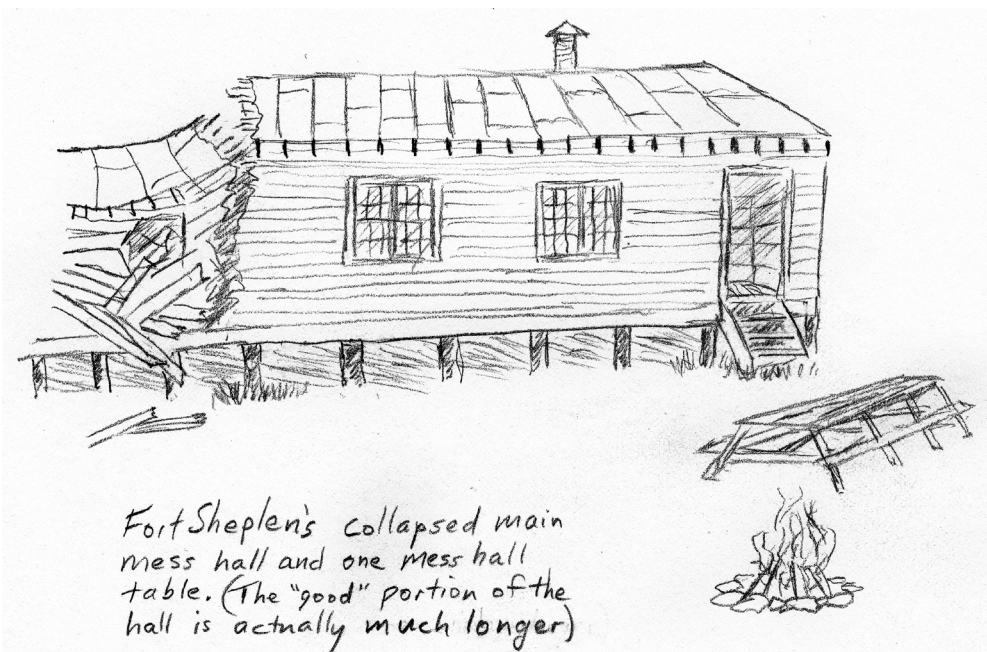 Fort Sheplen's collapsed main
mess hall and one mess hall
table. (The "good" portion of the
hall is actually much longer)